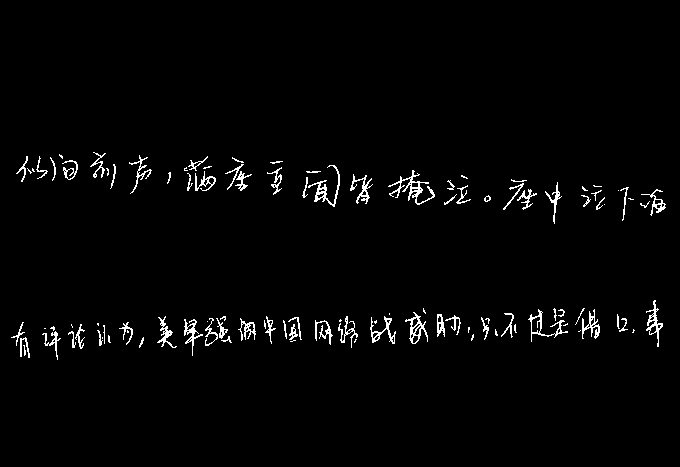 似向前声,满座重闻皆掩泣。座中泣下谁
有评论认为,美军强调中国网络战威胁,只不过是借口,事